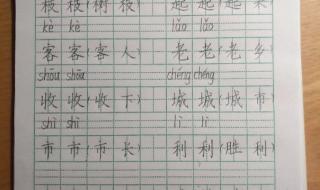 (树 起起(起来
kè kè lǎo lǎo
客客(客人 老老(老乡
shōu shōu chéng chéng
收收(收下 城城(城市
shì shì lì lì
市市(市长 利利(胜利)